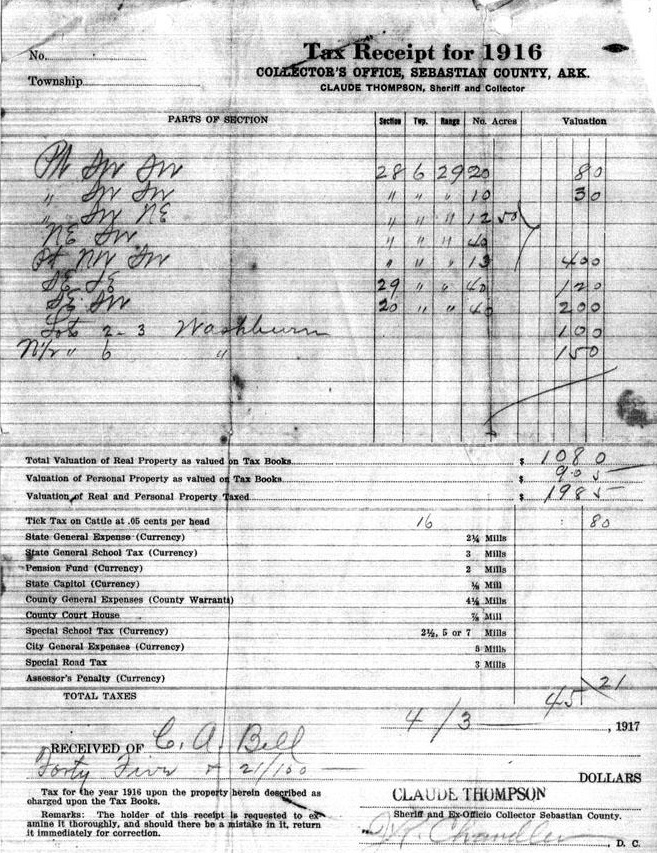 No.
Tax Receipt for 1916
Township
COLLECTOR'S OFFICE, SEBASTIAN COUNTY, ARK.
CLAUDE THOMPSON, Sheriff and Collector
PARTS OF SECTION Section Twp. Range No. Acres Valuation
Pt SW SW 28 6 29 20 80
" SW SW " " " 10 30
" SW NE " " " 12 50
NE SW " " " 40
Pt NW SW " " " 13 400
SE SE 29 " " 40 120
SE SW 20 " " 40 200
Lots 2-3 Washburn 100
N1/2 " 6 " 150
Total Valuation of Real Property as valued on Tax Books $ 1080
Valuation of Personal Property as valued on Tax Books $ 905
Valuation of Real and Personal Property Taxed $ 1985
Tick Tax on Cattle at .05 cents per head 16 80
State General Expense (Currency) Mills
State General School Tax (Currency) 3 Mills
Pension Fund (Currency) 2 Mills
State Capitol (Currency) Mill
County General Expenses (County Warrants) Mills
County Court House Mill
Special School Tax (Currency) 2½, 5 or 7 Mills
City General Expenses (Currency) 5 Mills
Special Road Tax 3 Mills
Assessor's Penalty (Currency)
TOTAL TAXES 45 21
4/3 , 1917
RECEIVED OF C. A. Bell
Forty Five & 21/100
DOLLARS
Tax for the year 1916 upon the property herein described as
charged upon the Tax Books.
CLAUDE THOMPSON
Sheriff and Ex-Officio Collector Sebastian County.
Remarks: The holder of this receipt is requested to ex-
amine it thoroughly, and should there be a mistake in it, return
it immediately for correction.
Chandler D. C.